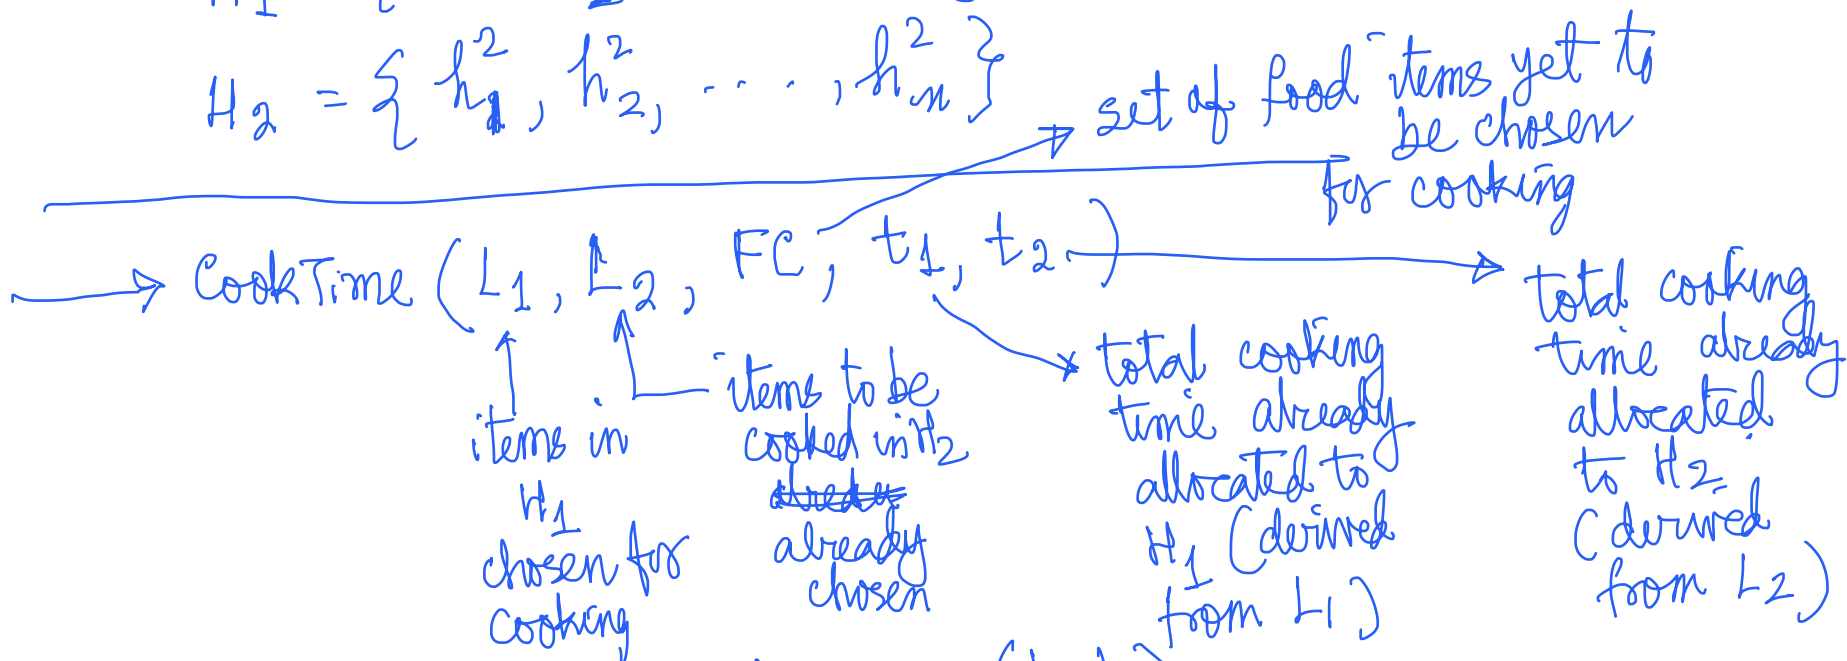 H₂ = { h₁², h₂², ...., hₙ² }
set of food items yet to
be chosen
for cooking
→ CookTime (L₁, L₂, FC, t₁, t₂)
items in
H₁
chosen for
cooking
items to be
cooked in H₂
already
chosen
total cooking
time already
allocated to
H₁ (derived
from L₁)
total cooking
time already
allocated
to H₂
(derived
from L₂)